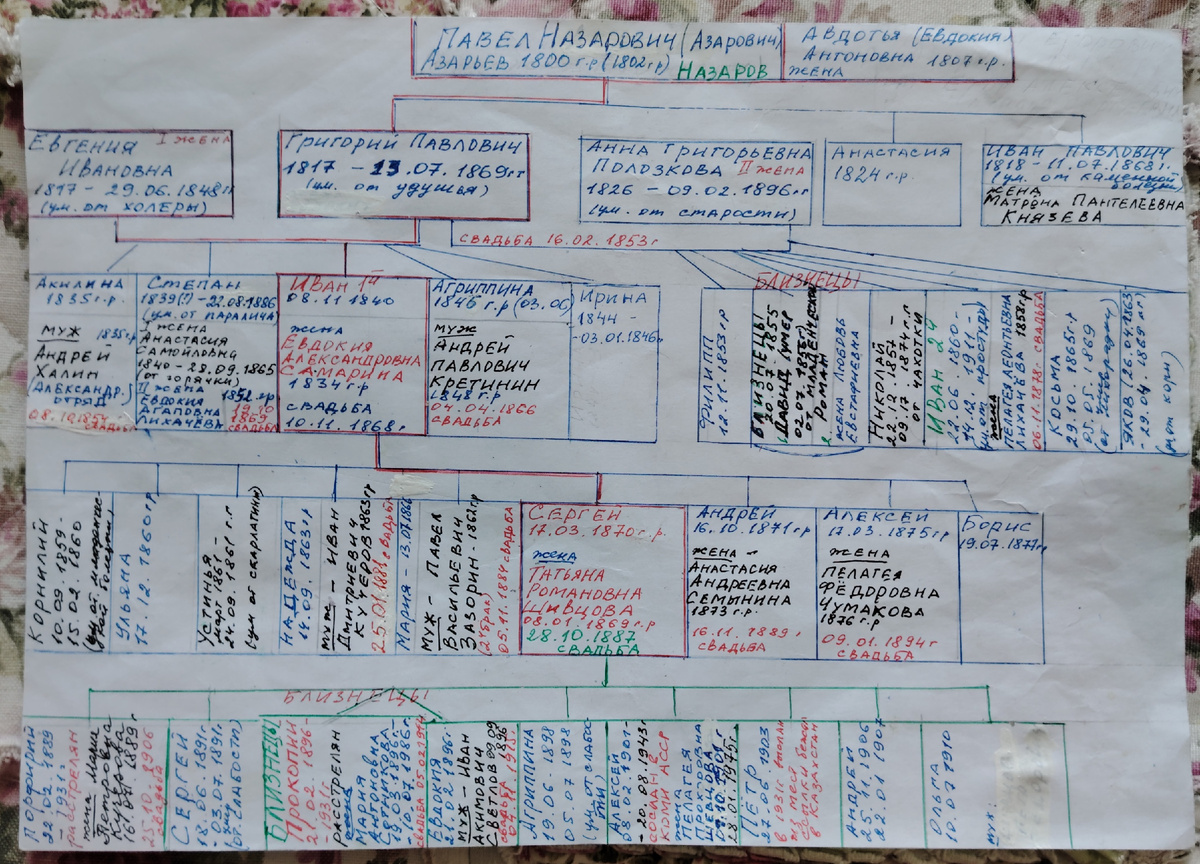 ПАВЕЛ НАЗАРОВИЧ (АЗАРОВИЧ)
АЗАРЬЕВ 1800 г.р (1802 г)
НАЗАРОВ
АВДОТЬЯ (ЕВДОКИЯ)
АНТОНОВНА 1807 г.р.
ЖЕНА
ЕВГЕНИЯ I ЖЕНА
ИВАНОВНА
1817 - 29.06.1848 г
(ум. от ХОЛЕРЫ)
ГРИГОРИЙ ПАВЛОВИЧ
1817 - 13.07.1869 гг
(ум. от удушья)
АННА ГРИГОРЬЕВНА
ПОЛОЗКОВА II ЖЕНА
1826 - 09.02.1896 гг
(ум. от СТАРОСТИ)
АНАСТАСИЯ
1824 г.р.
ИВАН ПАВЛОВИЧ
1818 - 11.07.1863 г.
(ум. от каменной
болезни)
ЖЕНА
МАТРЁНА ПАНТЕЛЕЕВНА
КНЯЗЕВА
СВАДЬБА 16.02.1853 г
АКИЛИНА
1835 г.р.
МУЖ 1835 г.р
АНДРЕЙ
ХАЛИН
(АЛЕКСАНДР.)
ОТРЯД
СВАДЬБА
СТЕПАН
1839(?) - 22.08.1886
(ум. от ПАРАЛИЧА)
I ЖЕНА
АНАСТАСИЯ
САМОЙЛОВНА
1840 - 28.09.1865
(от ГОРЯЧКИ)
II ЖЕНА 1852 г.р
ЕВДОКИЯ 19.10
АГАПОВНА 1869
ЛИХАЧЁВА СВАДЬБА
ИВАН 1й
08.11.1840
жена
ЕВДОКИЯ
АЛЕКСАНДРОВНА
САМАРИНА
1834 г.р
СВАДЬБА
10.11.1868 г
АГРИППИНА
1846 г.р (03.06)
МУЖ
АНДРЕЙ
ПАВЛОВИЧ
КРЕТИНИН
1848 г.р
04.04.1866
СВАДЬБА
ИРИНА
1844 -
-03.01.1846 г
БЛИЗНЕЦЫ
ФИЛИПП
12.11.1853 г.р
БЛИЗНЕЦЫ
1. ДАВИД (умер
2. РОМАН
ЖЕНА ЛЮБОВЬ
ЕВСТАФИЕВНА
НИКОЛАЙ
22.12.1857 -
09.17.1874 г.г
от ЧАХОТКИ
ИВАН 2й
22.06.1860 -
14.12.1911
ЖЕНА
ПЕЛАГЕЯ ЛЕОНТЬЕВНА
ЛИХАЧЁВА 1858 г.р
06.11.1878 - СВАДЬБА
КОСЬМА
29.10.1865 г.
05.05.1869
ЯКОВ (26.04.1863 -
- 29.04.1869 гг)
(от кори)
КОРНИЛИЙ
10.09.1859 -
15.02.1860
УЛЬЯНА
17.12.1860 г.р
УСТИНЬЯ
март 1861 -
24.09.1861 г.г
(ум от СКАРЛАТИНЫ)
НАДЕЖДА
14.09.1863 г.р
МУЖ - ИВАН
ДМИТРИЕВИЧ
КУЧЕРОВ 1863 г.р
25.01.1881 г СВАДЬБА
МАРИЯ - 13.07.1866
МУЖ - ПАВЕЛ
ВАСИЛЬЕВИЧ
ЗАЗОРИН - 1862 г.р
(2й брак)
05.11.1884 СВАДЬБА
СЕРГЕЙ
17.03.1870 г.р.
жена
ТАТЬЯНА
РОМАНОВНА
ШИВЦОВА
08.01.1869 г.р
28.10.1887
СВАДЬБА
АНДРЕЙ
16.10.1871 г.р
ЖЕНА -
АНАСТАСИЯ
АНДРЕЕВНА
СЕМЫНИНА
1873 г.р
16.11.1889 г
СВАДЬБА
АЛЕКСЕЙ
17.03.1875 г.р
ЖЕНА
ПЕЛАГЕЯ
ФЁДОРОВНА
ЧУМАКОВА
1876 г.р
09.01.1894 г
СВАДЬБА
БОРИС
19.07.1877 г.
БЛИЗНЕЦЫ
ПОРФИРИЙ
22.02.1889
- 1931 г.
расстрелян
жена МАРИЯ
ПЕТРОВНА
КУЧЕРОВА
25.10.1906
СВАДЬБА
СЕРГЕЙ
18.06.1891 г.
- 03.07.1891 г.
(от слабости)
БЛИЗНЕЦЫ
ПРОКОПИЙ
21.02.1896 -
- 1931
РАССТРЕЛЯН
МАРИЯ
АНТОНОВНА
ЕВДОКИЯ
21.02.1896 г.
МУЖ - ИВАН
АКИМОВИЧ
СВЕТЛОВ
СВАДЬБА
АГРИППИНА
19.06.1898
05.07.1898
(ум от слабости)
АЛЕКСЕЙ
08.02.1901 -
- 20.08.1943 г
СОСЛАН В
КОМИ АССР
ЖЕНА
ПЕЛАГЕЯ
ПРОХОРОВНА
ШЕВЦОВА
28.01.1975 г
ПЁТР
27.06.1903
в 1931 г
из тюрьмы бежал
в КАЗАХСТАН
АНДРЕЙ
25.10.1906
22.01.1907
ОЛЬГА
10.07.1910
МУЖ